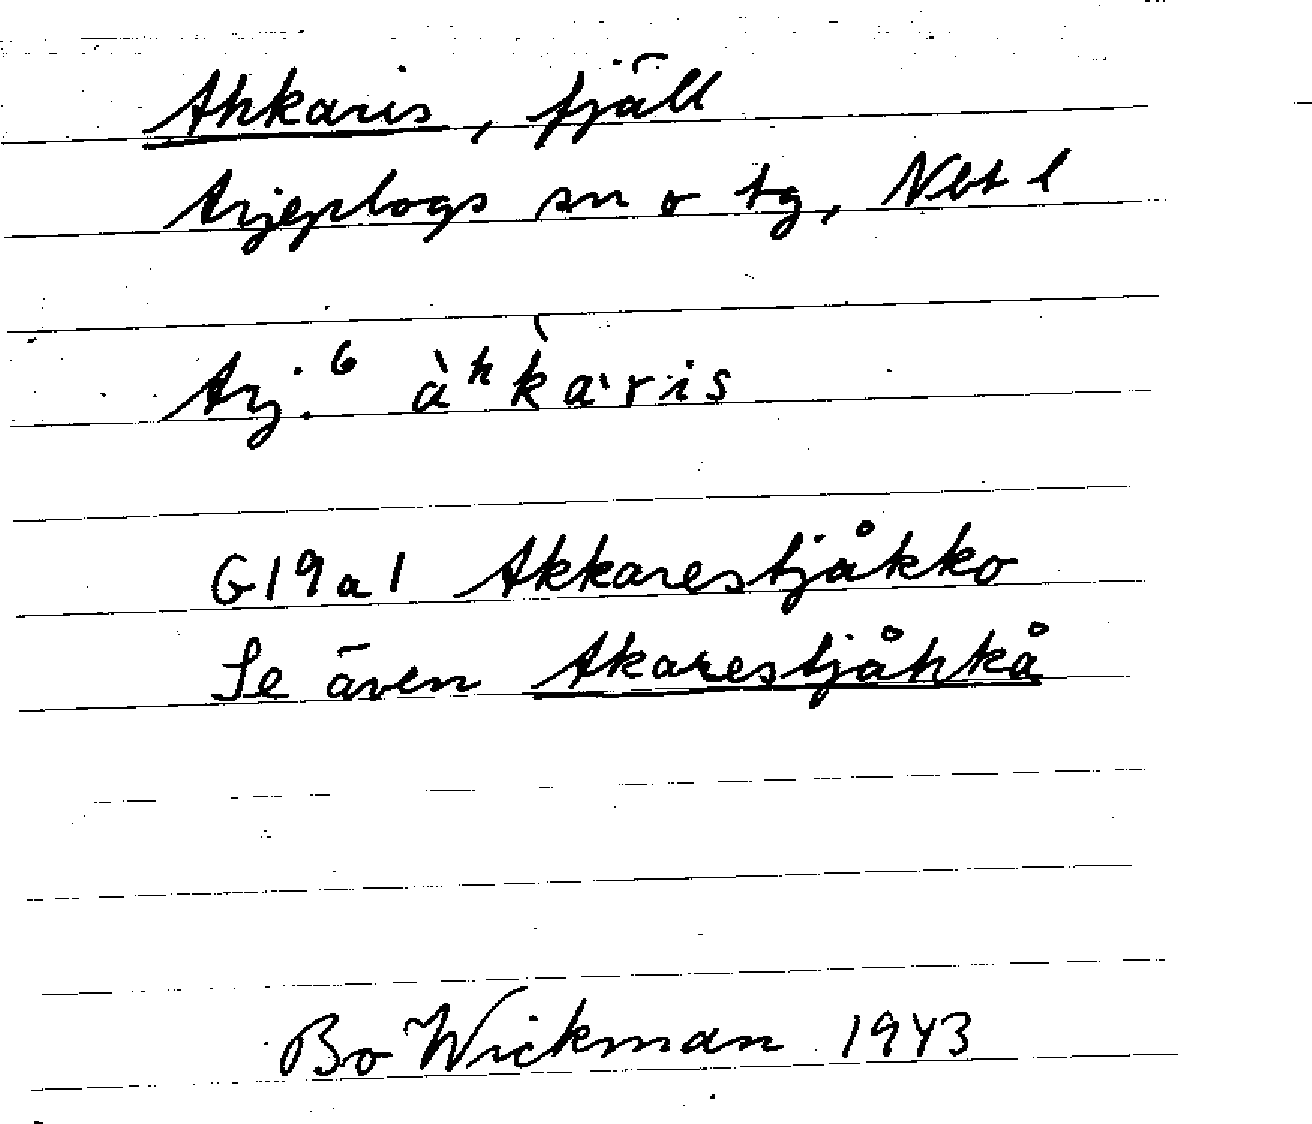 Ahkaris, fjäll
Arjeplogs sn o tg, Nbt l
Arj.⁶ àʰk̀a·ris
G19a1 Akkarestjåkko
Se även Akarestjåhkå
Bo Wickman 1943